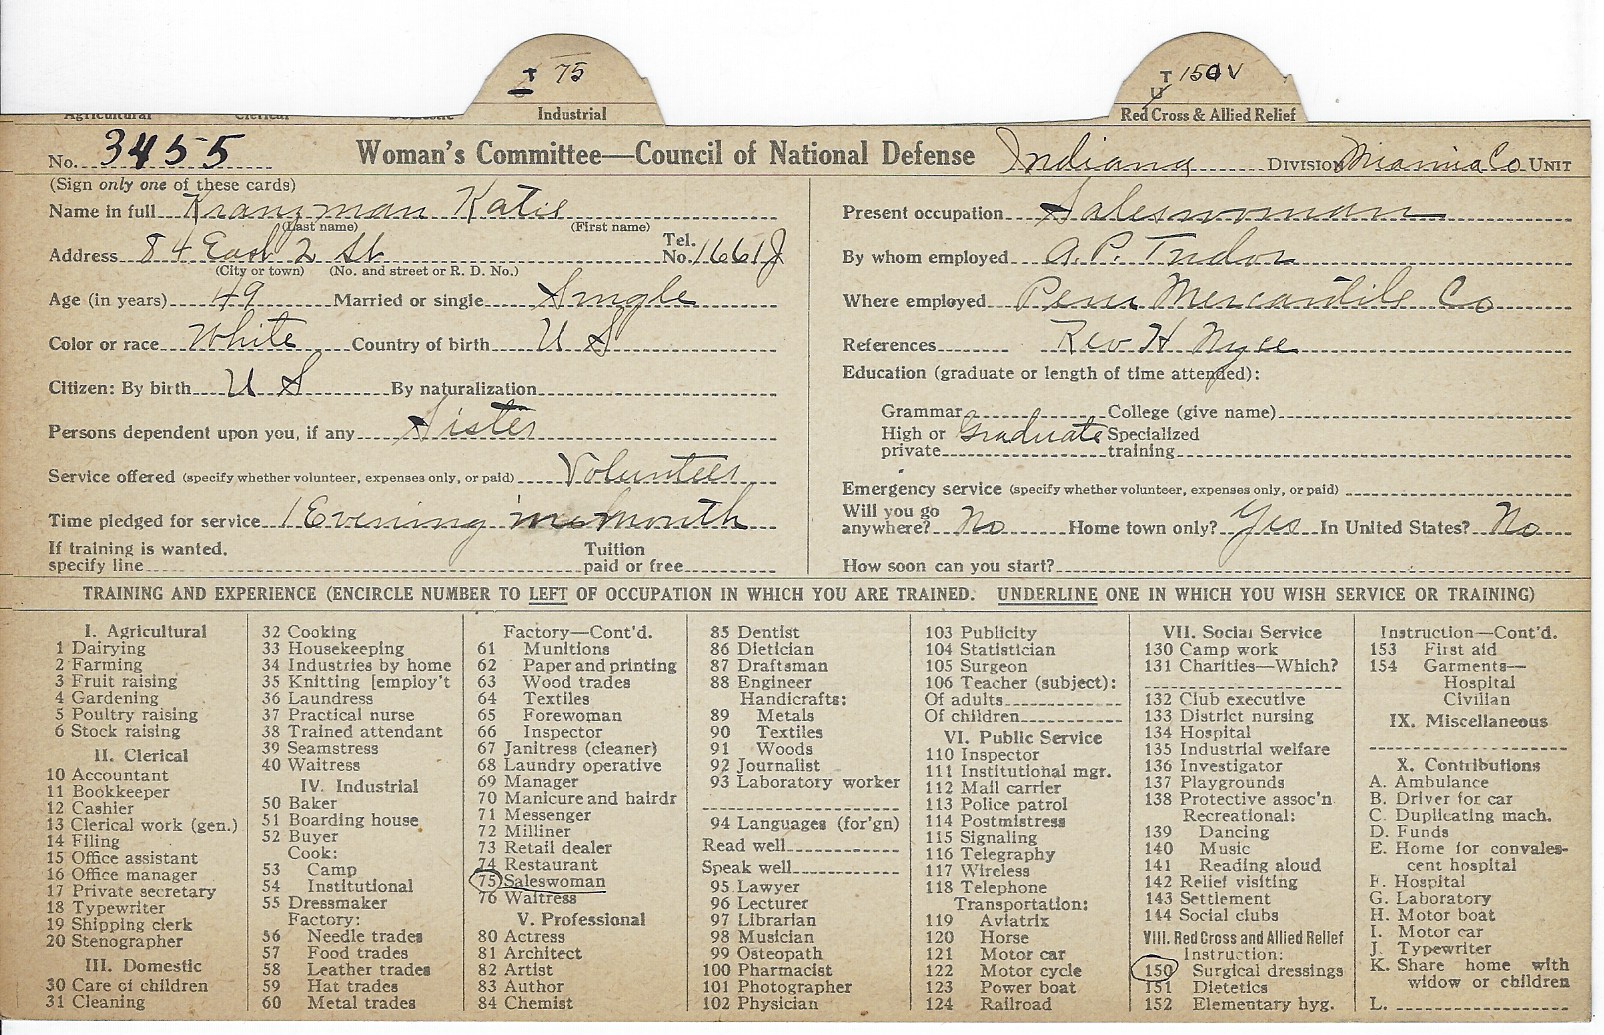 I 75
T 150 V
U
Agricultural Clerical Domestic Industrial Red Cross & Allied Relief
No. 3455 Woman's Committee—Council of National Defense Indiana DIVISION Miamia Co UNIT
(Sign only one of these cards)
Name in full Kranzman Katie
(Last name) (First name)
Address 84 East 2 St Tel. No. 1661J
(City or town) (No. and street or R. D. No.)
Age (in years) 49 Married or single Single
Color or race White Country of birth U S
Citizen: By birth U S By naturalization
Persons dependent upon you, if any Sister
Service offered (specify whether volunteer, expenses only, or paid) Volunteer
Time pledged for service 1 Evening in month
If training is wanted, specify line Tuition paid or free
Present occupation Saleswoman
By whom employed A. P. Tudor
Where employed Peru Mercantile Co
References Rev H Nyce
Education (graduate or length of time attended):
Grammar College (give name)
High or private Graduate Specialized training
Emergency service (specify whether volunteer, expenses only, or paid)
Will you go anywhere? No Home town only? Yes In United States? No
How soon can you start?
TRAINING AND EXPERIENCE (ENCIRCLE NUMBER TO LEFT OF OCCUPATION IN WHICH YOU ARE TRAINED. UNDERLINE ONE IN WHICH YOU WISH SERVICE OR TRAINING)
I. Agricultural
1 Dairying
2 Farming
3 Fruit raising
4 Gardening
5 Poultry raising
6 Stock raising
II. Clerical
10 Accountant
11 Bookkeeper
12 Cashier
13 Clerical work (gen.)
14 Filing
15 Office assistant
16 Office manager
17 Private secretary
18 Typewriter
19 Shipping clerk
20 Stenographer
III. Domestic
30 Care of children
31 Cleaning
32 Cooking
33 Housekeeping
34 Industries by home
35 Knitting [employ't
36 Laundress
37 Practical nurse
38 Trained attendant
39 Seamstress
40 Waitress
IV. Industrial
50 Baker
51 Boarding house
52 Buyer
Cook:
53 Camp
54 Institutional
55 Dressmaker
Factory:
56 Needle trades
57 Food trades
58 Leather trades
59 Hat trades
60 Metal trades
Factory—Cont'd.
61 Munitions
62 Paper and printing
63 Wood trades
64 Textiles
65 Forewoman
66 Inspector
67 Janitress (cleaner)
68 Laundry operative
69 Manager
70 Manicure and hairdr
71 Messenger
72 Milliner
73 Retail dealer
74 Restaurant
75 Saleswoman
76 Waitress
V. Professional
80 Actress
81 Architect
82 Artist
83 Author
84 Chemist
85 Dentist
86 Dietician
87 Draftsman
88 Engineer
Handicrafts:
89 Metals
90 Textiles
91 Woods
92 Journalist
93 Laboratory worker
94 Languages (for'gn)
Read well
Speak well
95 Lawyer
96 Lecturer
97 Librarian
98 Musician
99 Osteopath
100 Pharmacist
101 Photographer
102 Physician
103 Publicity
104 Statistician
105 Surgeon
106 Teacher (subject):
Of adults
Of children
VI. Public Service
110 Inspector
111 Institutional mgr.
112 Mail carrier
113 Police patrol
114 Postmistress
115 Signaling
116 Telegraphy
117 Wireless
118 Telephone
Transportation:
119 Aviatrix
120 Horse
121 Motor car
122 Motor cycle
123 Power boat
124 Railroad
VII. Social Service
130 Camp work
131 Charities—Which?
132 Club executive
133 District nursing
134 Hospital
135 Industrial welfare
136 Investigator
137 Playgrounds
138 Protective assoc'n
Recreational:
139 Dancing
140 Music
141 Reading aloud
142 Relief visiting
143 Settlement
144 Social clubs
VIII. Red Cross and Allied Relief
Instruction:
150 Surgical dressings
151 Dietetics
152 Elementary hyg.
Instruction—Cont'd.
153 First aid
154 Garments—
Hospital
Civilian
IX. Miscellaneous
X. Contributions
A. Ambulance
B. Driver for car
C. Duplicating mach.
D. Funds
E. Home for convales-
cent hospital
F. Hospital
G. Laboratory
H. Motor boat
I. Motor car
J. Typewriter
K. Share home with
widow or children
L.